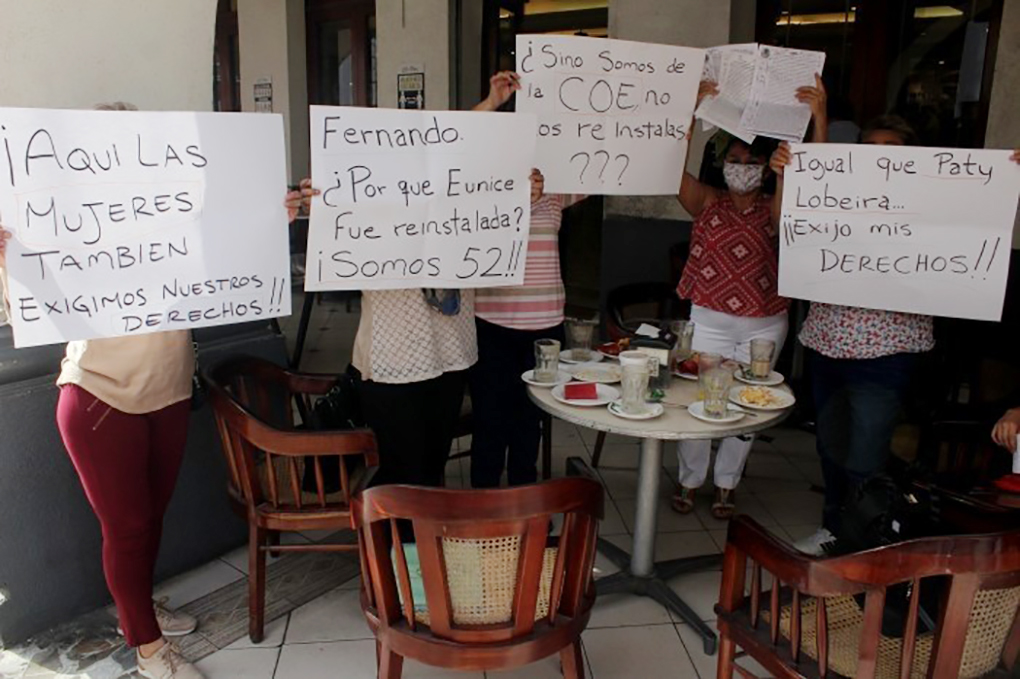 ¡AQUI LAS
MUJERES
TAMBIEN
EXIGIMOS NUESTROS
DERECHOS!!
Fernando.
¿Por que Eunice
Fue reinstalada?
¡Somos 52!!
¿Sino Somos de
la COE, no
os re Instalas
???
Igual que Paty
Lobeira...
¡¡Exijo mis
DERECHOS!!